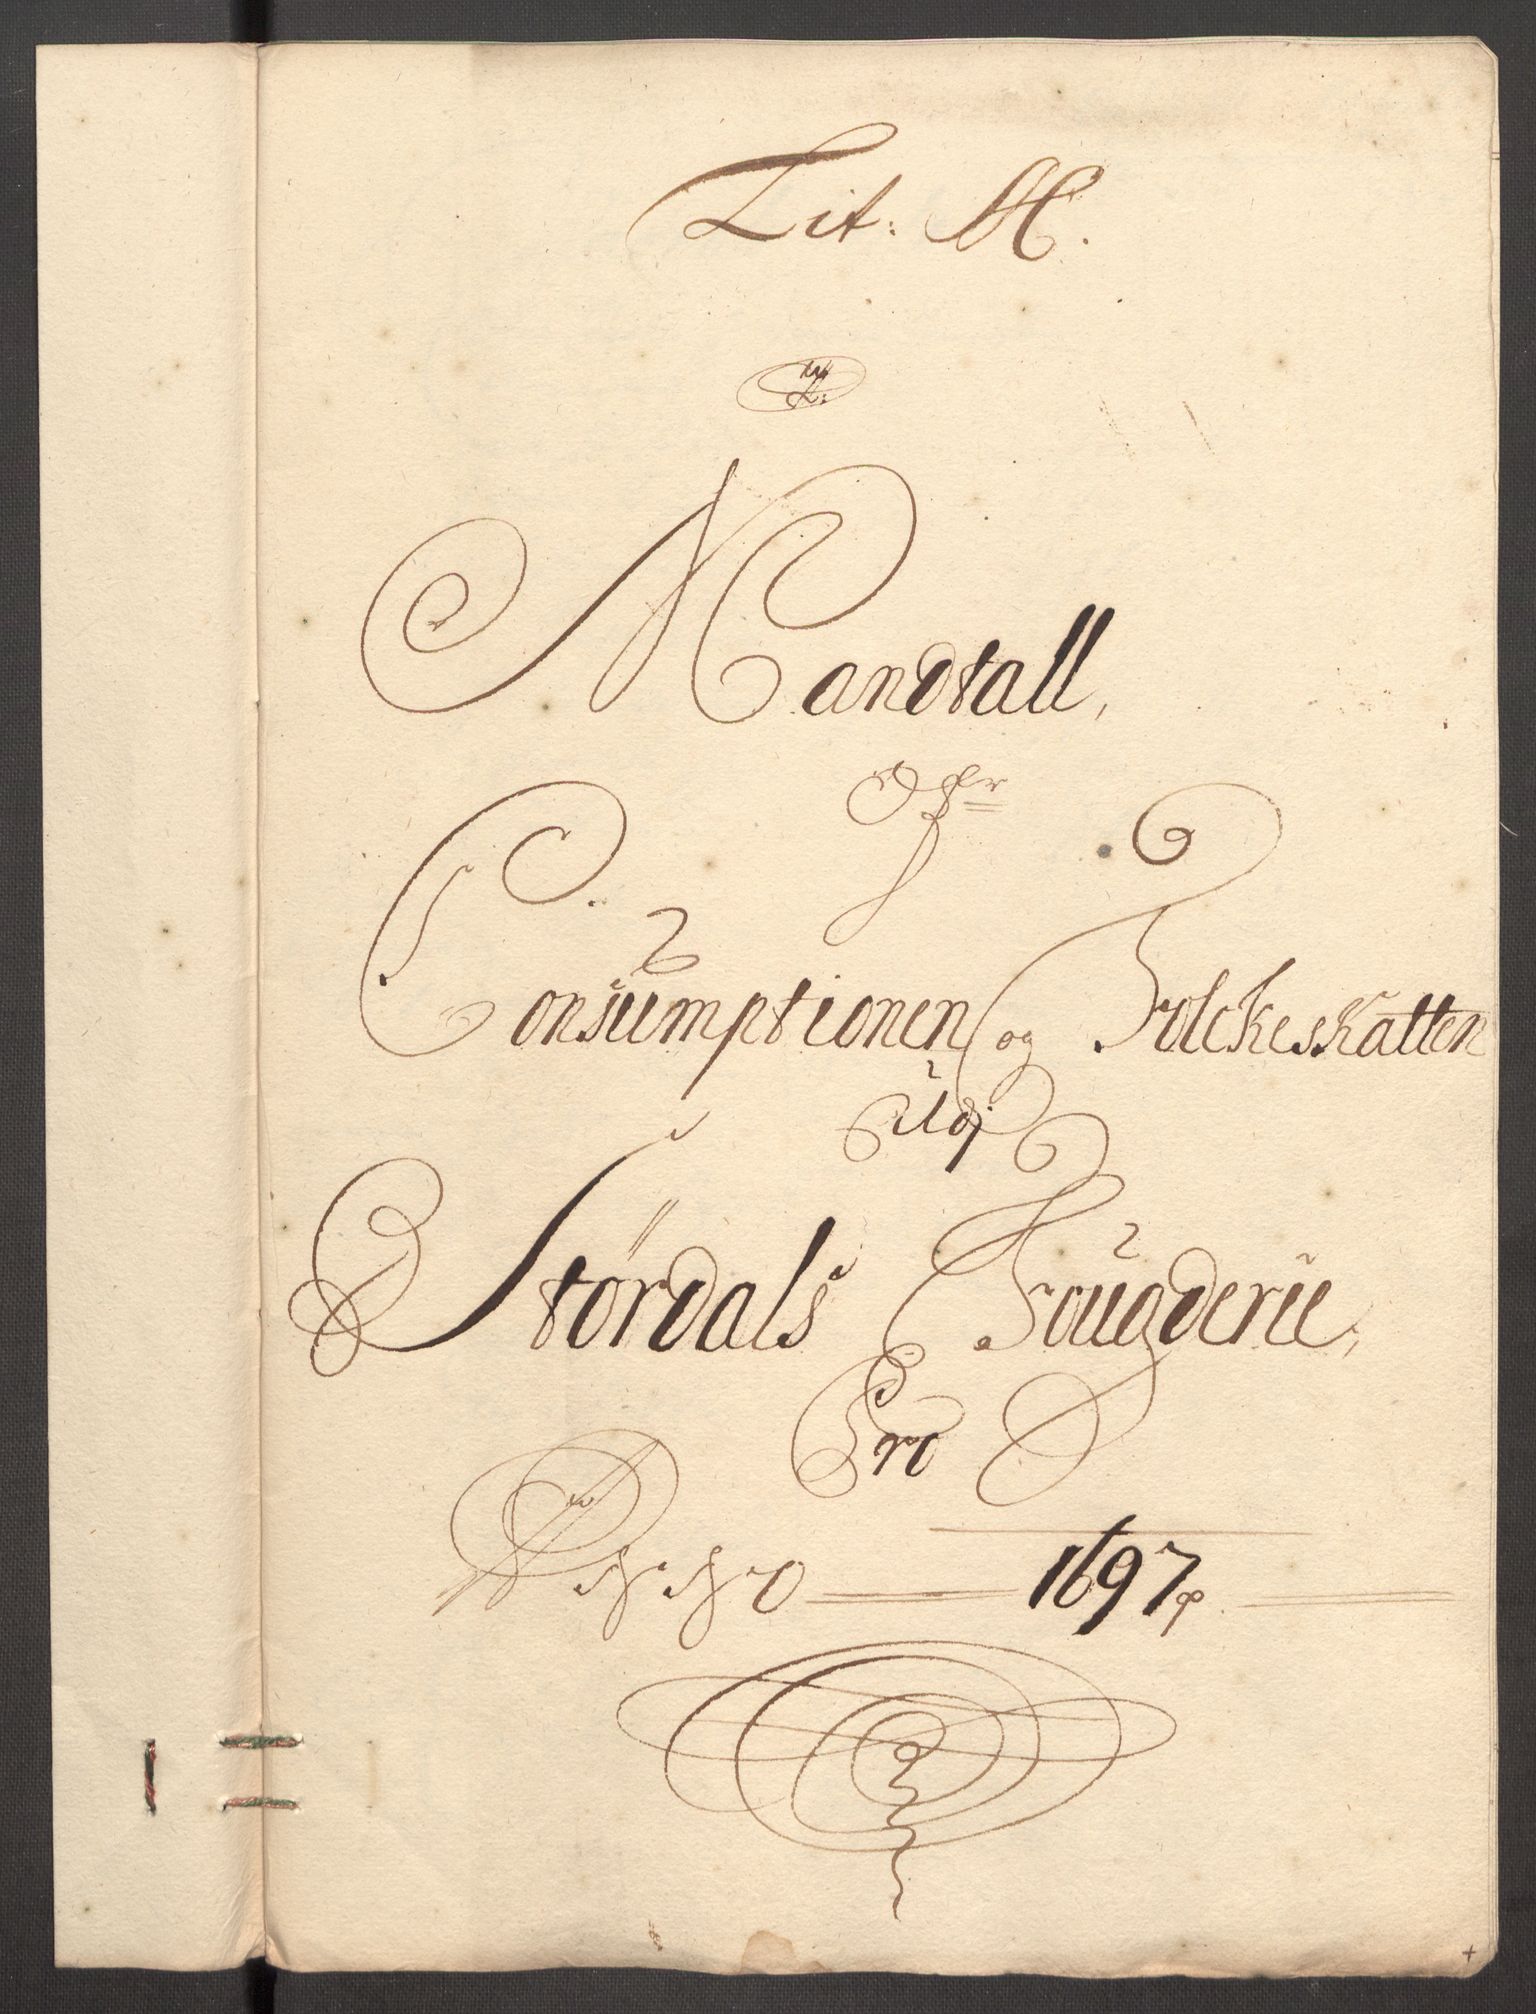 Lit: M.
Mandtall,
Ofr
Consumptionen og Folckeskatten
Udj
Størdals Fougderie,
Pro
Anno 1697